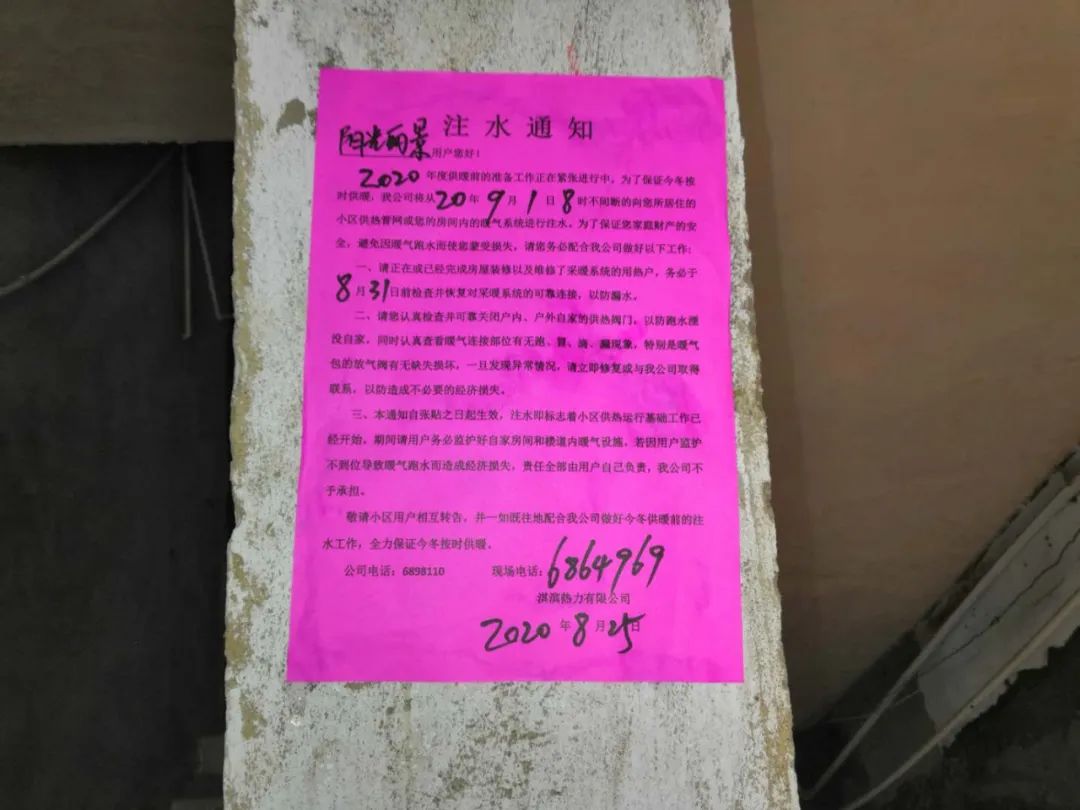 注水通知
阳光丽景用户您好！
2020年度供暖前的准备工作正在紧张进行中，为了保证今冬按
时供暖，我公司将从20年9月1日8时不间断的向您所居住的
小区供热管网或您的房间内的暖气系统进行注水。为了保证您家庭财产的安
全，避免因暖气跑水而使您蒙受损失，请您务必配合我公司做好以下工作：
一、请正在或已经完成房屋装修以及维修了采暖系统的用热户，务必于
8月31日前检查并恢复对采暖系统的可靠连接，以防漏水。
二、请您认真检查并可靠关闭户内、户外自家的供热阀门，以防跑水湮
没自家，同时认真查看暖气连接部位有无跑、冒、滴、漏现象，特别是暖气
包的放气阀有无缺失损坏，一旦发现异常情况，请立即修复或与我公司取得
联系，以防造成不必要的经济损失。
三、本通知自张贴之日起生效，注水即标志着小区供热运行基础工作已
经开始，期间请用户务必监护好自家房间和楼道内暖气设施，若因用户监护
不到位导致暖气跑水而造成经济损失，责任全部由用户自己负责，我公司不
予承担。
敬请小区用户相互转告，并一如既往地配合我公司做好今冬供暖前的注
水工作，全力保证今冬按时供暖。
公司电话：6898110 现场电话：6864969
淇滨热力有限公司
2020年8月25日